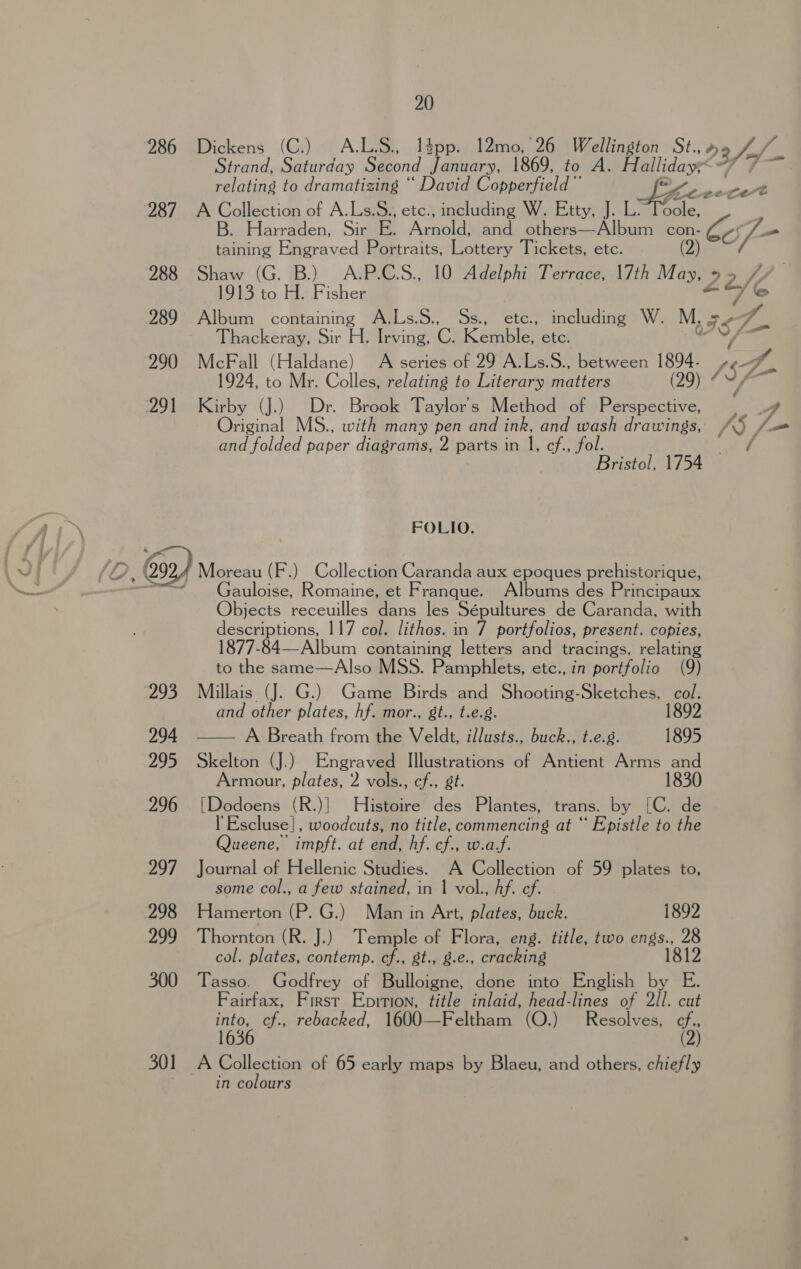 20
286 Dickens (C.) A.L.S., 1½pp. 12mo, 26 Wellington St.,
Strand, Saturday Second January, 1869, to A. Halliday
relating to dramatizing “David Copperfield”
287 A Collection of A.Ls.S., etc., including W. Etty, J. L. Toole,
B. Harraden, Sir E. Arnold, and others—Album con-
taining Engraved Portraits, Lottery Tickets, etc. (2)
288 Shaw (G. B.) A.P.C.S., 10 Adelphi Terrace, 17th May,
1913 to H. Fisher
289 Album containing A.Ls.S., Ss., etc., including W. M.
Thackeray, Sir H. Irving, C. Kemble, etc.
290 McFall (Haldane) A series of 29 A.Ls.S., between 1894-
1924, to Mr. Colles, relating to Literary matters (29)
291 Kirby (J.) Dr. Brook Taylor's Method of Perspective,
Original MS., with many pen and ink, and wash drawings,
and folded paper diagrams, 2 parts in 1, cf., fol.
Bristol, 1754
FOLIO.
292 Moreau (F.) Collection Caranda aux epoques prehistorique,
Gauloise, Romaine, et Franque. Albums des Principaux
Objects receuilles dans les Sépultures de Caranda, with
descriptions, 117 col. lithos. in 7 portfolios, present. copies,
1877-84—Album containing letters and tracings, relating
to the same—Also MSS. Pamphlets, etc., in portfolio (9)
293 Millais (J. G.) Game Birds and Shooting-Sketches, col.
and other plates, hf. mor., gt., t.e.g. 1892
294 —— A Breath from the Veldt, illusts., buck., t.e.g. 1895
295 Skelton (J.) Engraved Illustrations of Antient Arms and
Armour, plates, 2 vols., cf., gt. 1830
296 [Dodoens (R.)] Histoire des Plantes, trans. by [C. de
l'Escluse], woodcuts, no title, commencing at “Epistle to the
Queene,” impft. at end, hf. cf., w.a.f.
297 Journal of Hellenic Studies. A Collection of 59 plates to,
some col., a few stained, in 1 vol., hf. cf.
298 Hamerton (P. G.) Man in Art, plates, buck. 1892
299 Thornton (R. J.) Temple of Flora, eng. title, two engs., 28
col. plates, contemp. cf., gt., g.e., cracking 1812
300 Tasso. Godfrey of Bulloigne, done into English by E.
Fairfax, First Edition, title inlaid, head-lines of 2ll. cut
into, cf., rebacked, 1600—Feltham (O.) Resolves, cf.,
1636 (2)
301 A Collection of 65 early maps by Blaeu, and others, chiefly
in colours